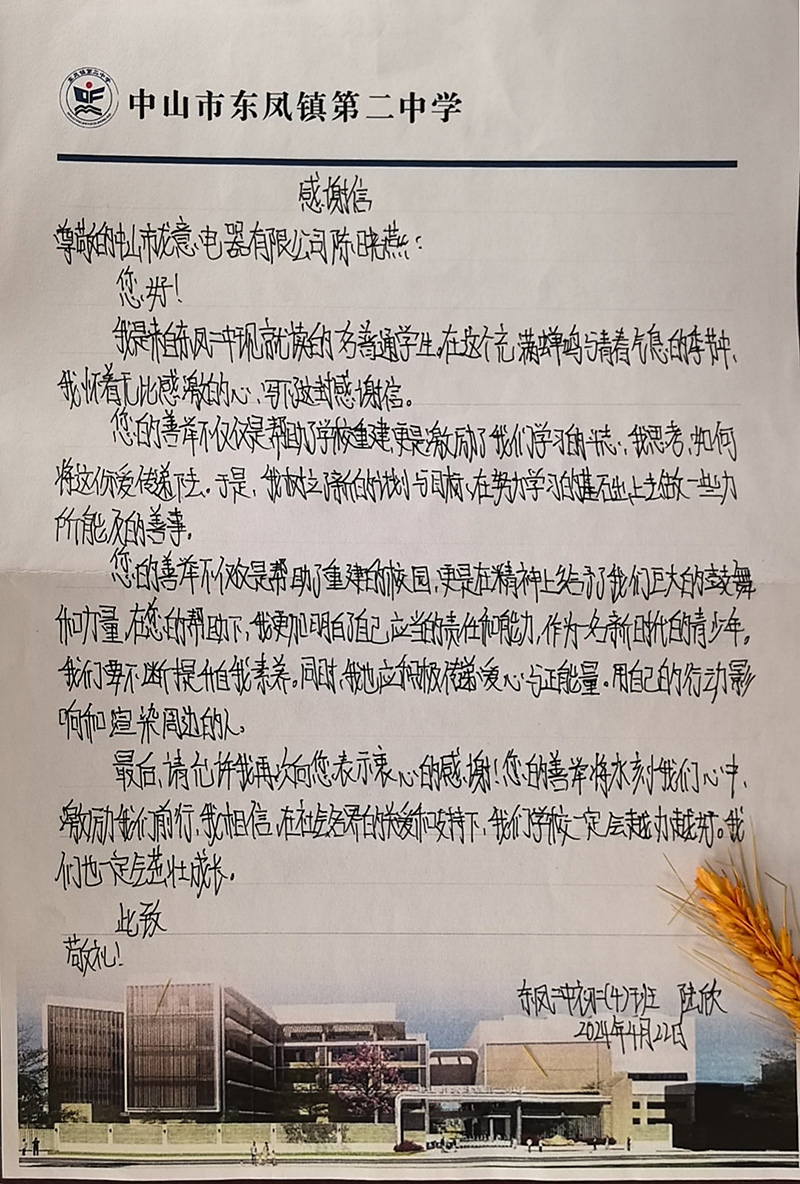 东凤镇第二中学
中山市东凤镇第二中学
感谢信
尊敬的中山市龙意电器有限公司陈晓燕:
您好!
我是来自东凤二中现就读的一名普通学生。在这个充满蝉鸣与青春气息的季节中,
我怀着无比感激的心,写下这封感谢信。
您的善举不仅仅是帮助了学校重建,更是激励了我们学习的斗志,我思考,如何
将这份爱传递下去。于是,我树立了新的计划与目标,在努力学习的基石出上去做一些力
所能及的善事。
您的善举不仅仅是帮助了重建的校园,更是在精神上给予了我们巨大的鼓舞
和力量,在您的帮助下,我更加明白了自己应当的责任和能力,作为一名新时代的青少年。
我们要不断提升自我素养。同时,我也应积极传递爱心与正能量。用自己的行动影
响和渲染周边的人。
最后,请允许我再次向您表示衷心的感谢!您的善举将永刻我们心中,
激励我们前行,我相信,在社会各界的关爱和支持下,我们学校一定会越办越好。我
们也一定会茁壮成长。
此致
敬礼!
东凤二中初二(4)班 陆欣
2024年4月22日